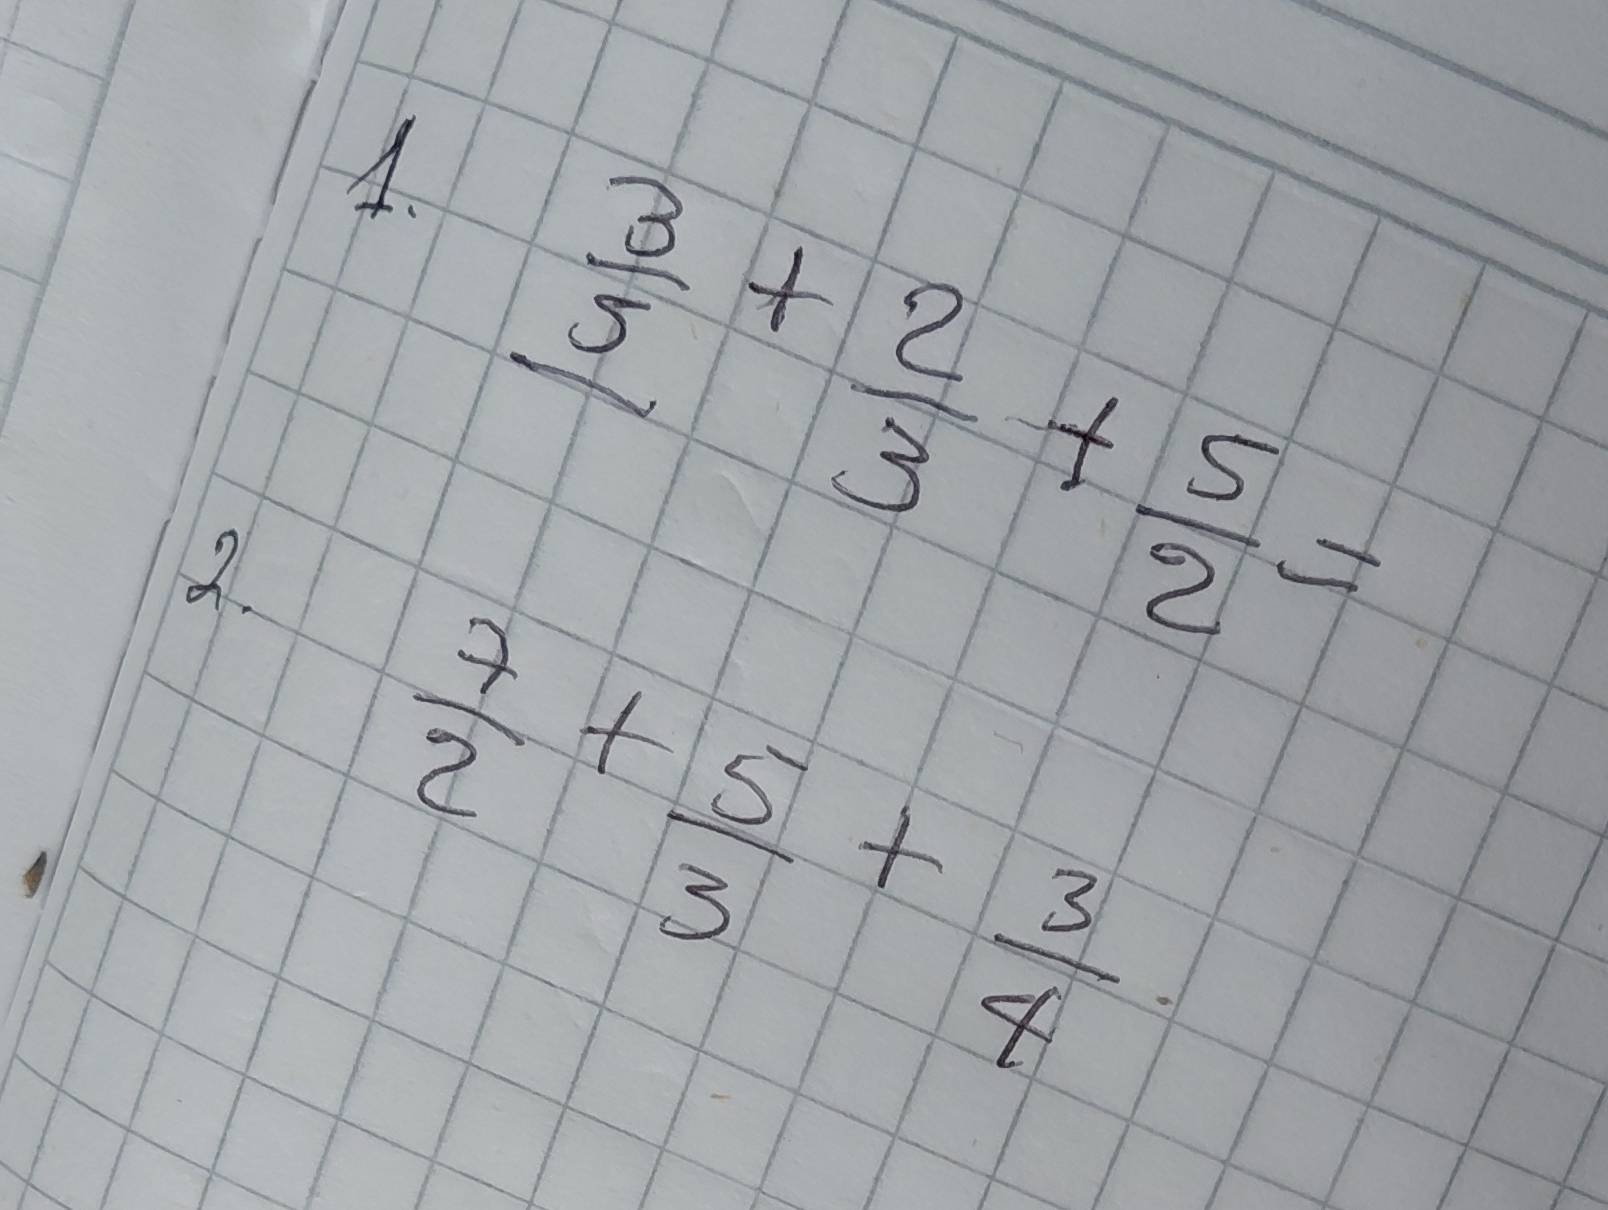 1. 3/5 + 2/3 + 5/2 =
2. 7/2 + 5/3 + 3/4